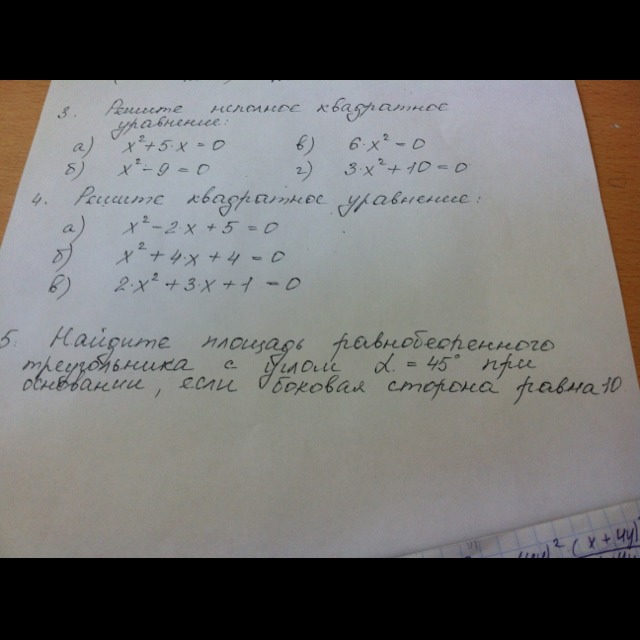 3. Решите неполное квадратное
уравнение:
а) x²+5·x=0 в) 6·x²=0
б) x²-9=0 г) 3·x²+10=0
4. Решите квадратное уравнение:
а) x²-2x+5=0
б) x²+4x+4=0
в) 2x²+3x+1=0
5. Найдите площадь равнобедренного
треугольника с углом α=45° при
основании, если боковая сторона равна 10
(x+4y)